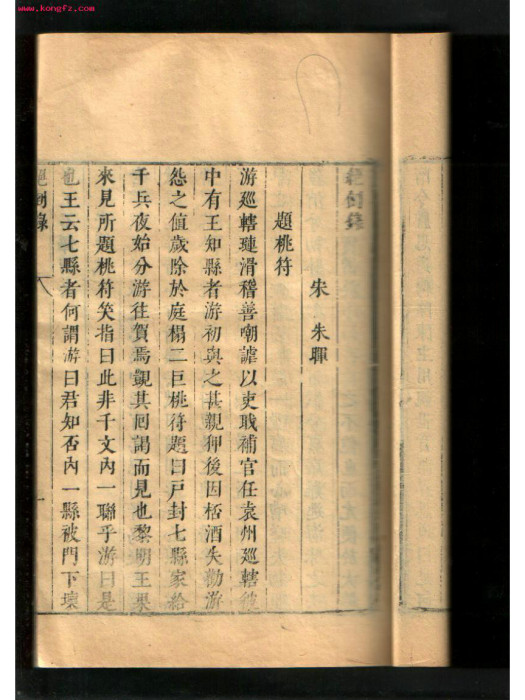 www.kongfz.com
宋 朱暉
題桃符
游巡轄璉滑稽善嘲謔以吏職補官任袁州巡轄
中有王知縣者游初與之甚親狎後因杯酒失勸游
怨之值歲除於庭榻二巨桃符題曰戸封七縣家給
千兵夜始分游往賀焉覬其囘謁而見也黎明王果
來見所題桃符笑指曰此非千文內一聯乎游曰是
也王云七縣者何謂游曰君知否內一縣被門下壞
絕倒錄
一